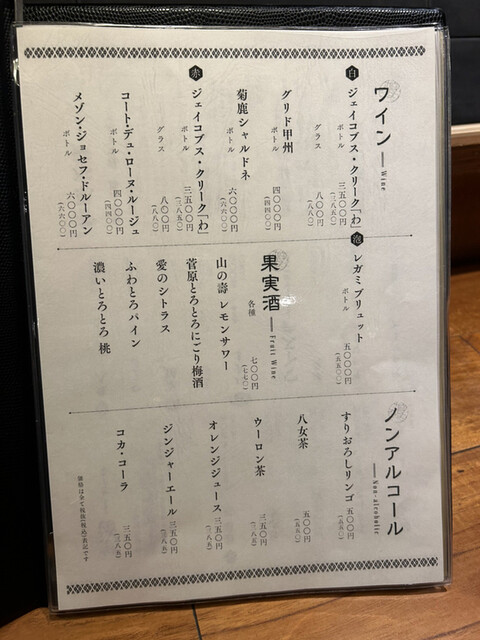 ワイン
Wine
白 ジェイコブス・クリーク「わ」
ボトル 三五〇〇円
(三八五〇)
グラス 八〇〇円
(八八〇)
グリド甲州
ボトル 四〇〇〇円
(四四〇〇)
菊鹿シャルドネ
ボトル 六〇〇〇円
(六六〇〇)
赤 ジェイコブス・クリーク「わ」
ボトル 三五〇〇円
(三八五〇)
グラス 八〇〇円
(八八〇)
コート・デュ・ローヌ・ルージュ
ボトル 四〇〇〇円
(四四〇〇)
メゾン・ジョセフ・ドルーアン
ボトル 六〇〇〇円
(六六〇〇)
泡 レガミブリュット
ボトル 五〇〇〇円
(五五〇〇)
果実酒
Fruit Wine
各種 七〇〇円
(七七〇)
山の壽 レモンサワー
菅原とろとろにごり梅酒
愛のシトラス
ふわとろパイン
濃いとろとろ 桃
ノンアルコール
Non-alcoholic
すりおろしリンゴ 五〇〇円
(五五〇)
八女茶 五〇〇円
(五五〇)
ウーロン茶 三五〇円
(三八五)
オレンジジュース 三五〇円
(三八五)
ジンジャーエール 三五〇円
(三八五)
コカ・コーラ 三五〇円
(三八五)
価格は全て税抜(税込)表記です